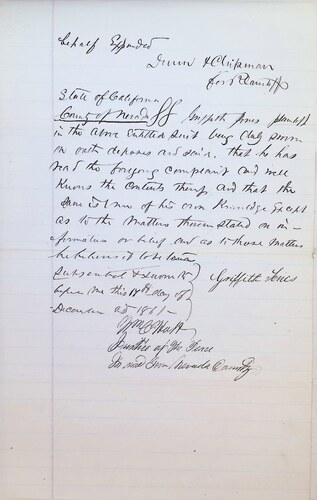 behalf Expended
Dunn & Chipman
for Plaintiff
State of California
County of Nevada SS Griffith Jones plaintiff
in the above Entitled suit being duly sworn
on oath deposes and says. that he has
read the foregoing complaint and well
Knows the contents thereof and that the
same is true of his own Knowledge Except
as to the matters therein stated on in-
formation or belief and as to those matters
he believes it to be true
Subscribed & Sworn to
before me this 18th day of
December AD 1861
Griffith Jones
Justice of the Peace
In and for Nevada County